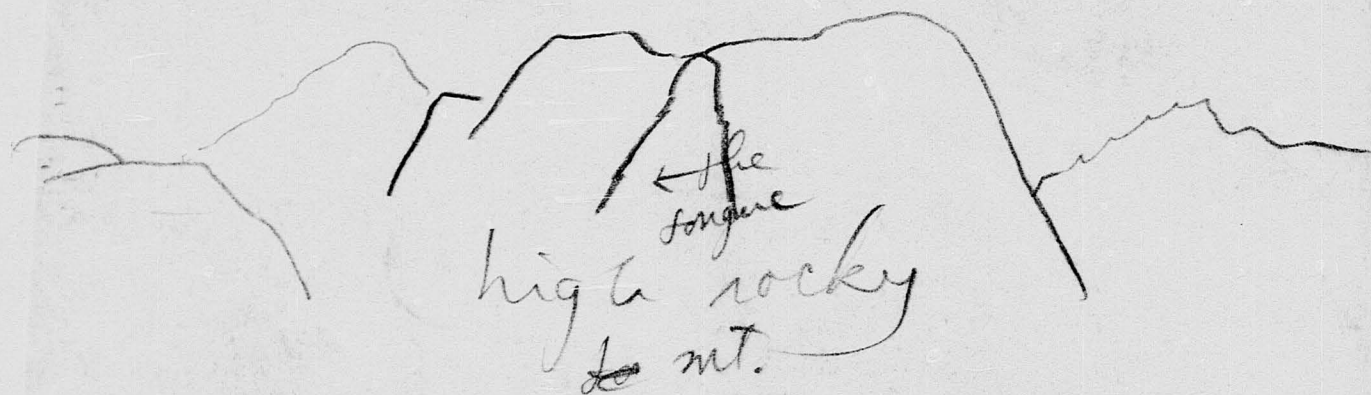 ← the
tongue
high rocky
mt.